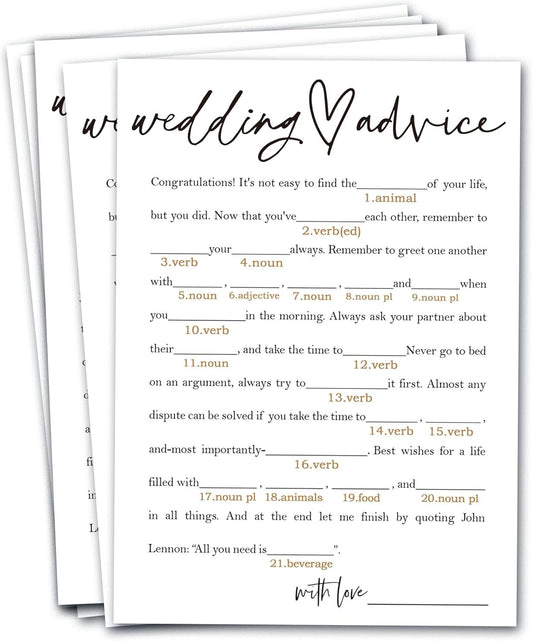 wedding advice
Congratulations! It's not easy to find the____________of your life,
1.animal
but you did. Now that you've____________each other, remember to
2.verb(ed)
__________your__________always. Remember to greet one another
3.verb 4.noun
with________ , ________ , ________ , ________and________when
5.noun 6.adjective 7.noun 8.noun pl 9.noun pl
you_____________in the morning. Always ask your partner about
10.verb
their___________, and take the time to___________Never go to bed
11.noun 12.verb
on an argument, always try to______________it first. Almost any
13.verb
dispute can be solved if you take the time to_________ , _________ ,
14.verb 15.verb
and-most importantly-_________________. Best wishes for a life
16.verb
filled with__________ , __________ , __________ , and____________
17.noun pl 18.animals 19.food 20.noun pl
in all things. And at the end let me finish by quoting John
Lennon: “All you need is___________”.
21.beverage
with love____________________